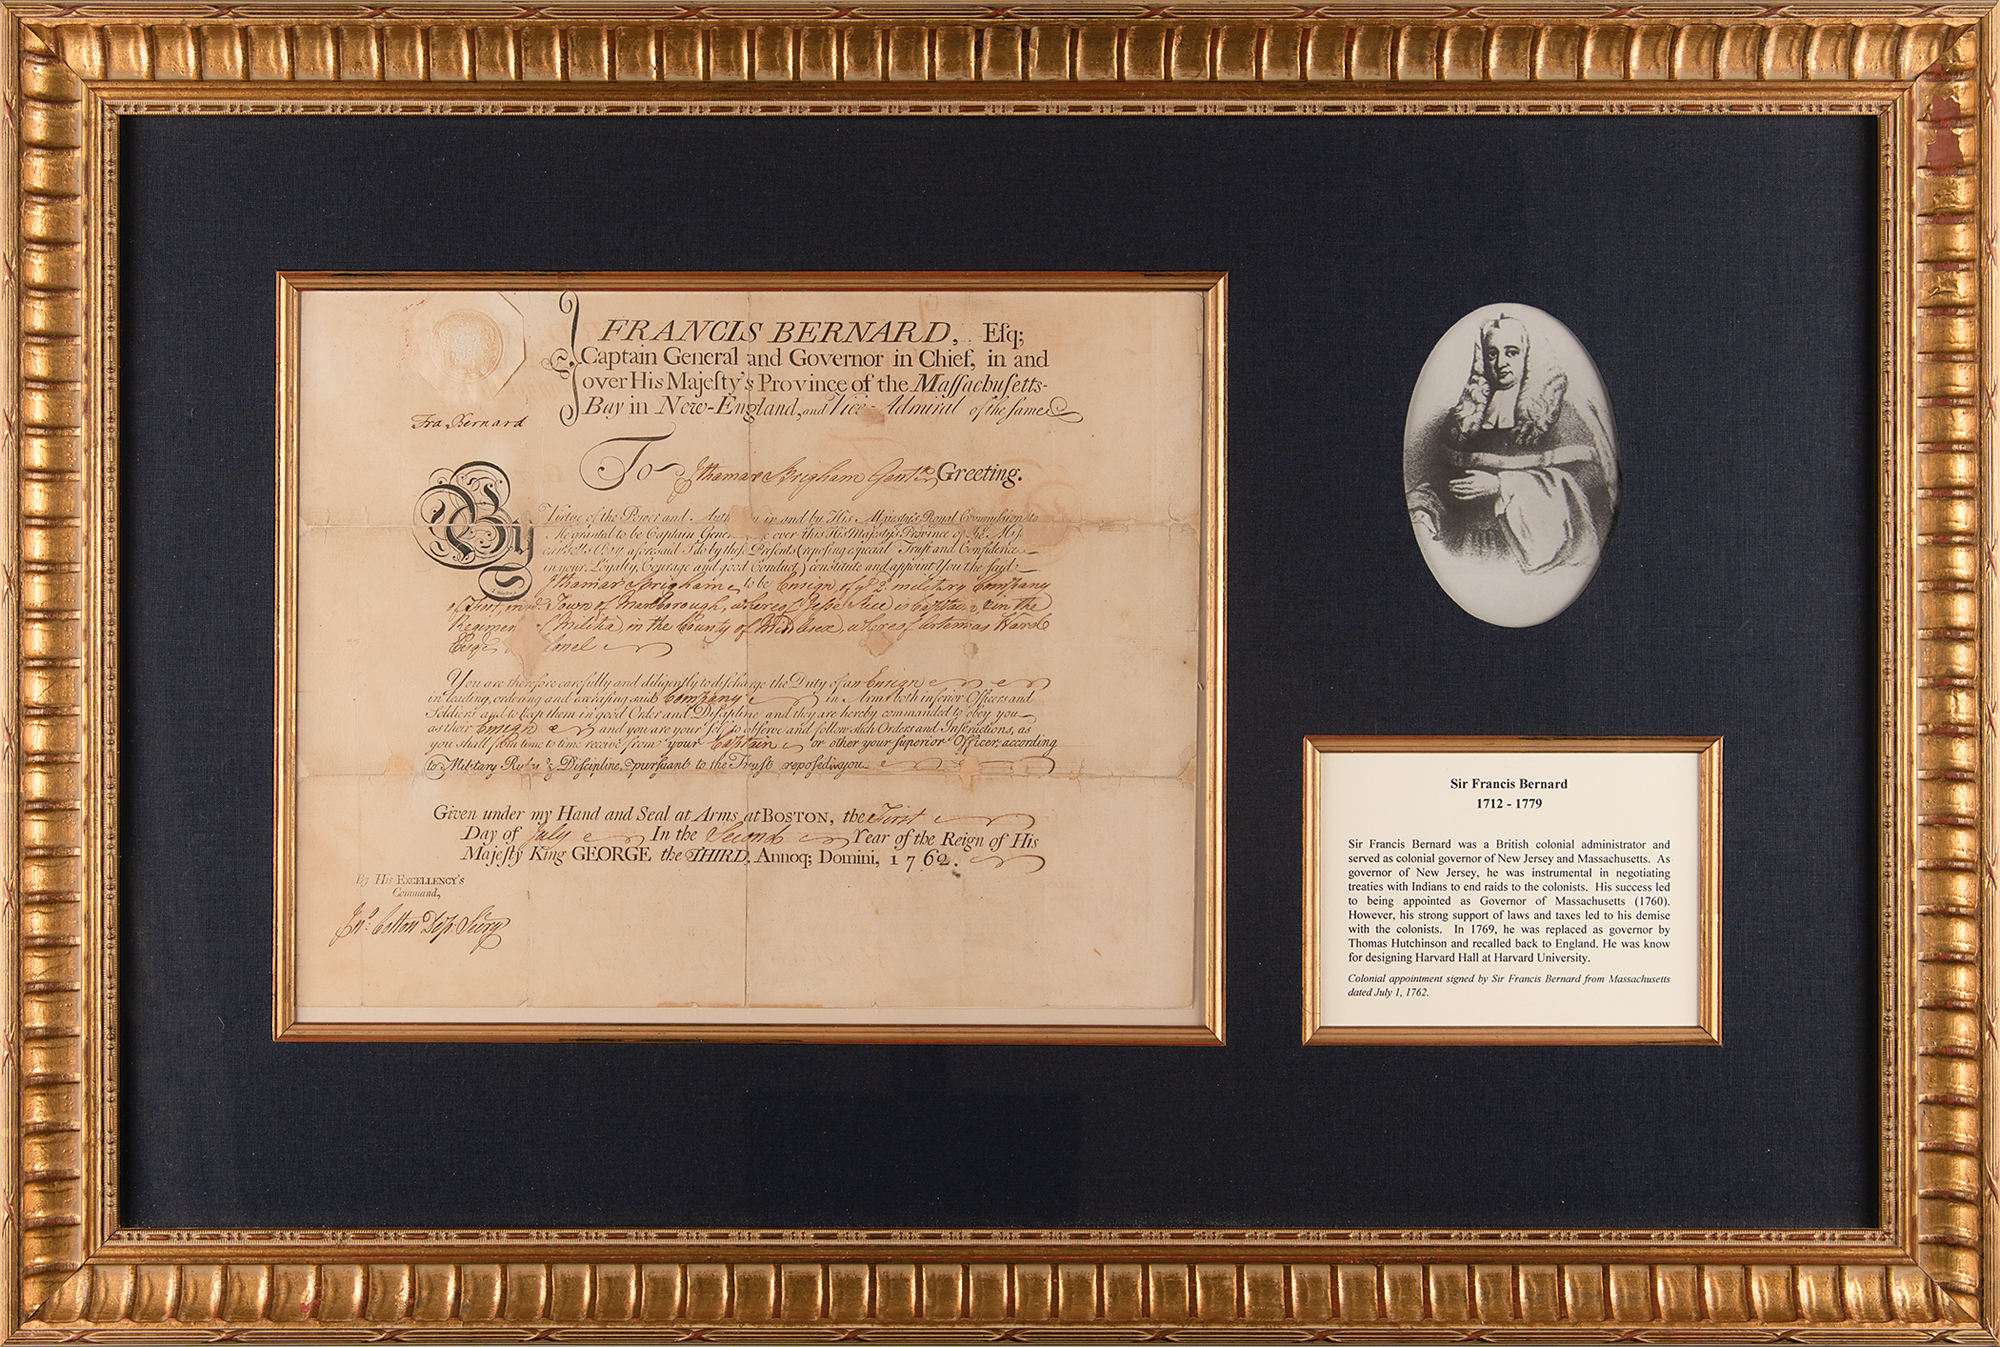 FRANCIS BERNARD, Eſq;
Captain General and Governor in Chief, in and
over His Majeſty's Province of the Maſſachuſetts-
Bay in New-England, and Vice-Admiral of the ſame
Fra Bernard
To Ithamar Brigham Gent.n Greeting.
By Virtue of the Power and Auth in and by His Majesty's Royal Commission to
Me granted to be Captain Gener over this His Majesty's Province of ye Maſſ
aforesaid I do by theſe Presents (repoſing eſpecial Trust and Confidence
in your Loyalty, Courage and good Conduct) constitute and appoint You the ſaid
Ithamar Brigham to be Ensign of ye 2d military Company
of Foot, in ye Town of Marlborough, whereof Jeſse Rice is Captain, & in the
Regimen of Militia, in the County of Middlesex, whereof Artemas Ward
Esqr. lonel
You are therefore carefully and diligently to diſcharge the Duty of an Ensign
in leading, ordering and exerciſing ſaid Company in Arms both inferior Officers and
Soldiers and to keep them in good Order and Diſcipline and they are hereby commanded to obey you
as their Ensign and you are your ſelf to obſerve and follow ſuch Orders and Inſtructions, as
you ſhall from time to time receive from your Captain or other your ſuperior Officer, according
to Military Rules & Diſcipline, purſuant to the Truſt repoſed in you.
Given under my Hand and Seal at Arms at BOSTON, the First
Day of July In the Second Year of the Reign of His
Majeſty King GEORGE the THIRD, Annoq; Domini, 1762.
By His EXCELLENCY'S
Command,
Jno. Cotton Dep. Secry
Sir Francis Bernard
1712 - 1779
Sir Francis Bernard was a British colonial administrator and
served as colonial governor of New Jersey and Massachusetts. As
governor of New Jersey, he was instrumental in negotiating
treaties with Indians to end raids to the colonists. His success led
to being appointed as Governor of Massachusetts (1760).
However, his strong support of laws and taxes led to his demise
with the colonists. In 1769, he was replaced as governor by
Thomas Hutchinson and recalled back to England. He was know
for designing Harvard Hall at Harvard University.
Colonial appointment signed by Sir Francis Bernard from Massachusetts
dated July 1, 1762.